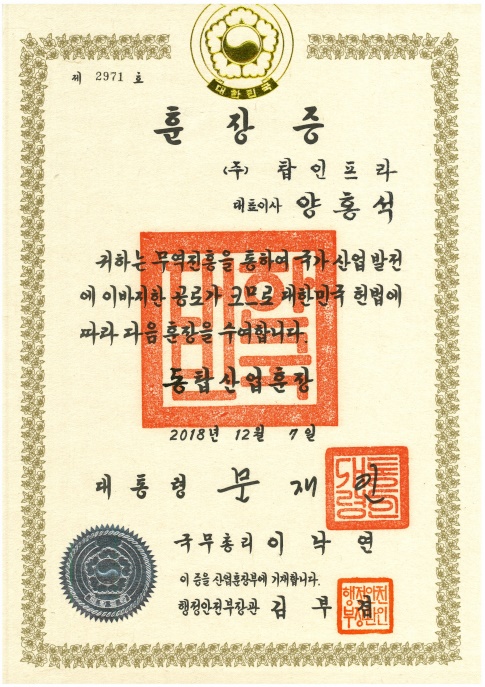 대한민국
제 2971 호
훈장증
(주) 탑인프라
대표이사 양홍석
귀하는 무역진흥을 통하여 국가 산업 발전
에 이바지한 공로가 크므로 대한민국 헌법에
따라 다음 훈장을 수여합니다.
동탑산업훈장
2018년 12월 7일
대통령 문재인
국무총리 이낙연
이 증을 산업훈장부에 기재합니다.
행정안전부장관 김부겸